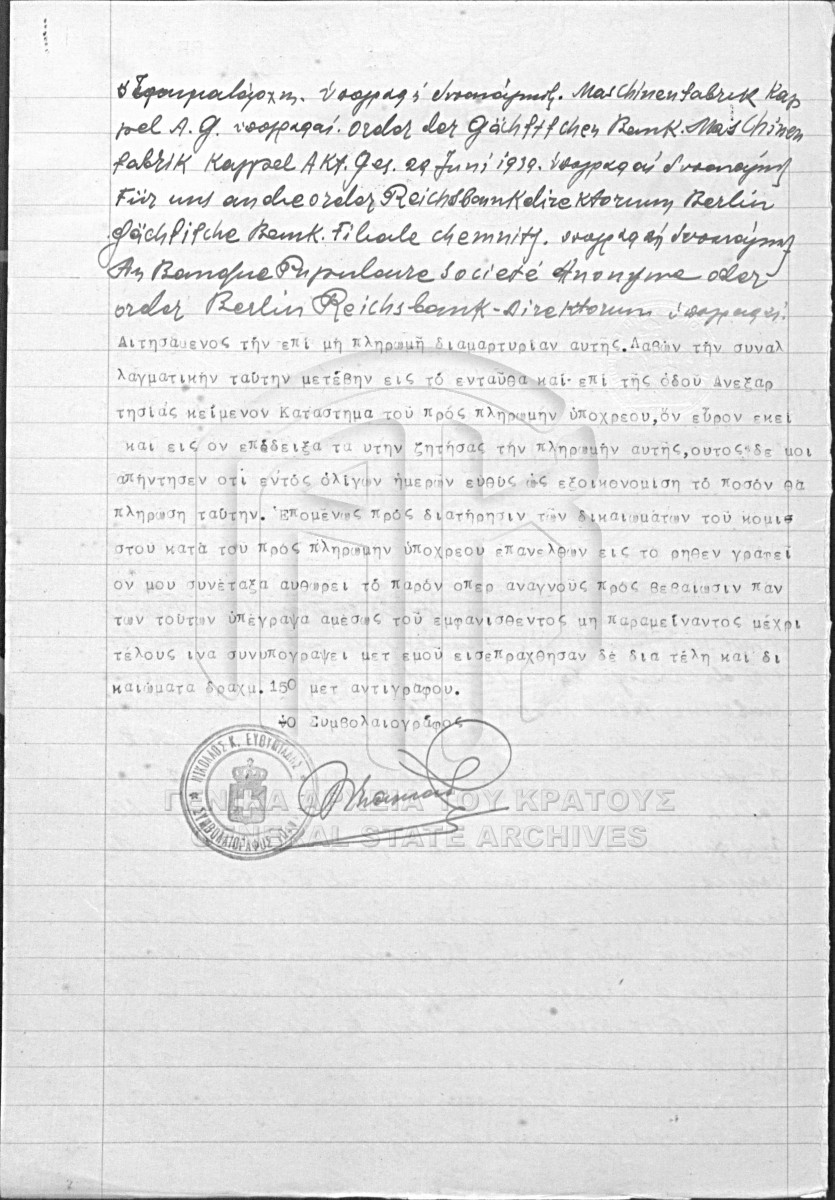 υπογραφή Maschinenfabrik Kap
pel A.G. υπογραφαί. order der Gächsischen Bank. Maschinen
fabrik Kappel Akt. Ges. 29 Juni 1939. υπογραφαί
Für uns an die order Reichsbankdirektorium Berlin
Gächsische Bank. Filiale Chemnitz. υπογραφαί
An Banque Populaire Societé Anonyme oder
order Berlin Reichsbank-Direktorium υπογραφαί.
Αιτησάμενος τήν επί μή πληρωμή διαμαρτυρίαν αυτής. Λαβών τήν συναλ
λαγματικήν ταύτην μετέβην εις τό ενταύθα καί επί τής όδού Ανεξαρ
τησίάς κείμενον Κατάστημα τού πρός πληρωμήν ύποχρεου, όν εύρον εκεί
και εις ον επέδειξα τα υτην ζητήσας τήν πληρωμήν αυτής, ουτος δε μοι
απήντησεν οτί εντός όλίγων ήμερών ευθύς ώς εξοικονομιση τό ποσόν θα
πληρωση ταύτην. Έπομένως πρός διατήρησιν τών δικαιωμάτων τού κομι
στου κατά του πρός πληρωμην ύποχρεου επανελθών εις το ρηθεν γραφεί
όν μου συνέταξα αυθωρεί τό παρόν οπερ αναγνούς πρός βεβαίωσιν παν
των τούτων ύπέγραψα αμέσως τού εμφανισθεντος μη παραμείναντος μέχρι
τέλους ινα συνυπογράψει μετ εμού εισεπραχθησαν δέ δια τέλη καί δι
καιώματα δραχμ. 150 μετ αντιγράφου.
Ό Συμβολαιογράφος
ΝΙΚΟΛΑΟΣ Κ. ΕΥΘΥΜΙΑΔΗΣ
ΣΥΜΒΟΛΑΙΟΓΡΑΦΟΣ
ΓΕΝΙΚΑ ΑΡΧΕΙΑ ΤΟΥ ΚΡΑΤΟΥΣ
GENERAL STATE ARCHIVES